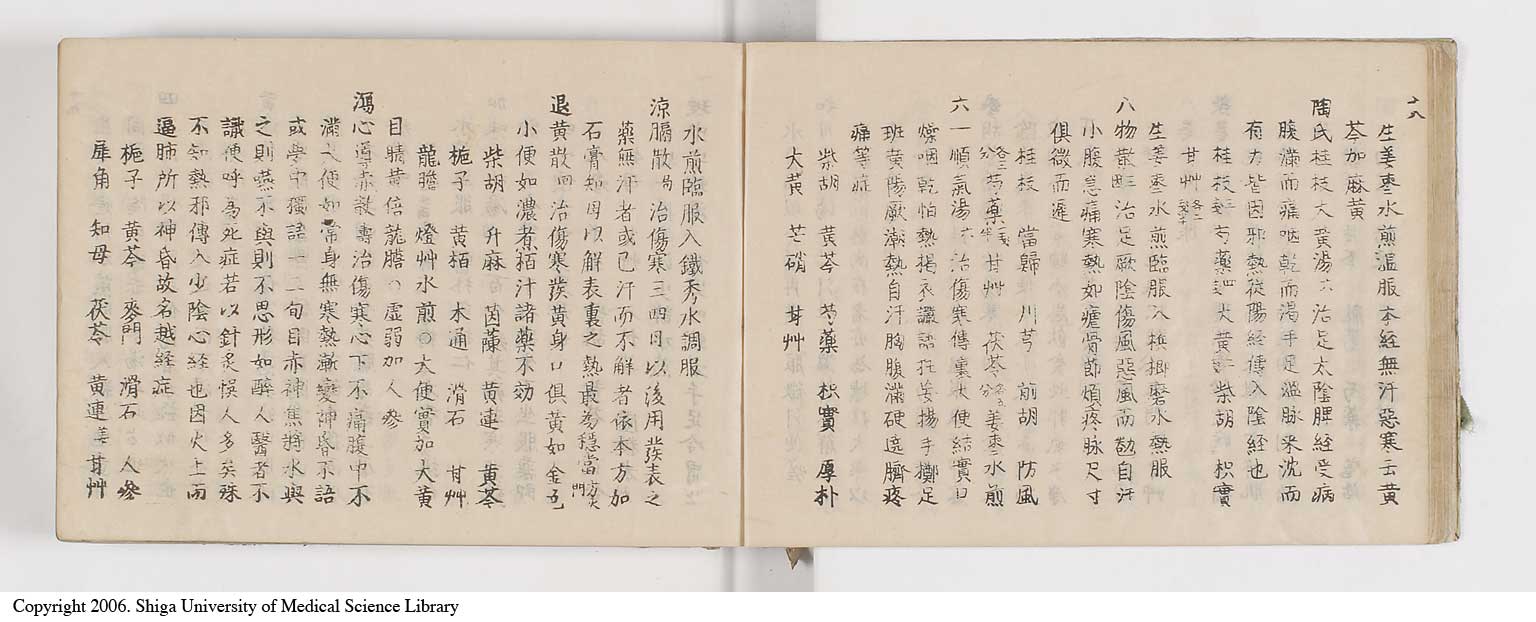 十八
生姜棗水煎温服本経無汗惡寒去黄
芩加麻黄
陶氏桂枝大黄湯六治足太陰脾経受病
腹満而痛咽乾而渴手足温脉来沈而
有力皆因邪熱従陽経傳入陰経也
桂枝 芍藥 大黄 柴胡 枳實
甘艸
生姜棗水煎臨服入檳榔磨水熱服
八物散 治足厥陰傷風惡風而勧自汗
小腹急痛寒熱如瘧骨節煩疼脉尺寸
俱微而遲
桂枝 當歸 川芎 前胡 防風
芍藥 甘艸 茯苓 姜棗水煎
六一順氣湯六治傷寒傳裏大便結實口
燥咽乾怕熱揭衣譫語狂妄揚手擲足
班黄陽厥潮熱自汗胸腹満硬遶臍疼
痛等症
柴胡 黄芩 芍藥 枳實 厚朴
大黄 芒硝 甘艸
水煎臨服入鐵秀水調服
涼膈散 治傷寒三四日以後用發表之
薬無汗者或已汗而不解者依本方加
石膏知母以解表裏之熱最為穏當
退黄散四治傷寒發黄身口俱黄如金色
小便如濃煮栢汁諸藥不効
柴胡 升麻 茵蔯 黄連 黄芩
梔子 黄栢 木通 滑石 甘艸
龍膽 燈艸水煎○大便實加大黄
目睛黄倍龍膽○虚弱加人参
瀉心導赤散 治傷寒心下不痛腹中不
満大便如常身無寒熱漸變神昏不語
或學中獨語一二句目赤神焦將水與
之則嚥不與則不思形如醉人醫者不
識便呼為死症若以針炙悞人多矣殊
不知熱邪傳入少陰心経也因火上而
逼肺所以神昏故名越経症
梔子 黄芩 麥門 滑石 人参
犀角 知母 茯苓 黄連 姜甘艸